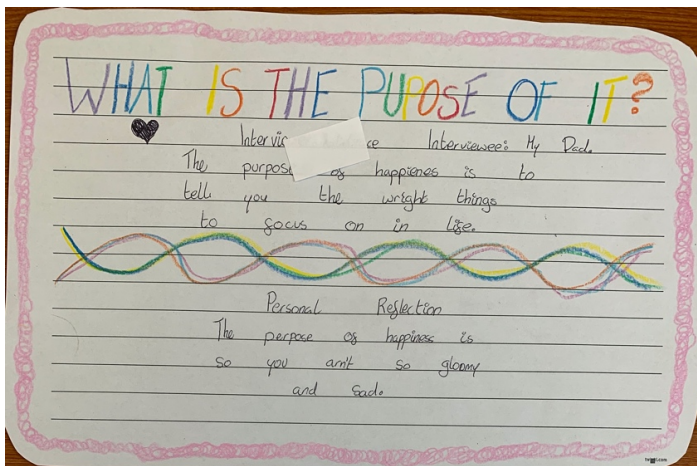 WHAT IS THE PUPOSE OF IT?
Interviewee: My Dad.
The purpose of happienes is to
tell you the wright things
to focus on in life.
Personal Reflection
The perpose of happiness is
so you ain't so gloomy
and sad.